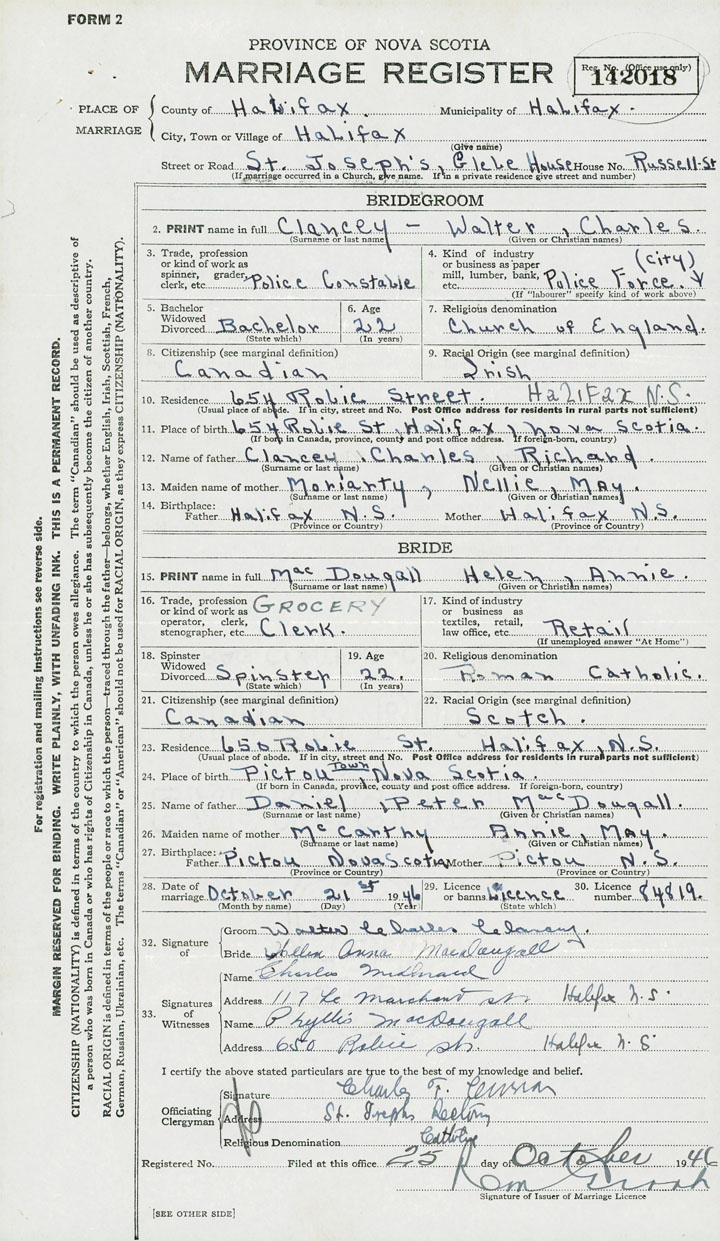 FORM 2
PROVINCE OF NOVA SCOTIA
MARRIAGE REGISTER
Reg. No. (Office use only)
142018
PLACE OF MARRIAGE
County of Halifax. Municipality of Halifax.
City, Town or Village of Halifax
(Give name)
Street or Road St. Joseph's, Glebe House House No. Russell St
(If marriage occurred in a Church, give name. If in a private residence give street and number)
BRIDEGROOM
2. PRINT name in full Clancey - Walter, Charles.
(Surname or last name) (Given or Christian names)
3. Trade, profession or kind of work as spinner, grader, clerk, etc. Police Constable
4. Kind of industry or business as paper mill, lumber, bank, etc. Police Force. (City)
(If "labourer" specify kind of work above)
5. Bachelor Widowed Divorced Bachelor
(State which)
6. Age 22
(In years)
7. Religious denomination
Church of England.
8. Citizenship (see marginal definition)
Canadian
9. Racial Origin (see marginal definition)
Irish
10. Residence 654 Robie Street. HALIFAX N.S.
(Usual place of abode. If in city, street and No. Post Office address for residents in rural parts not sufficient)
11. Place of birth 654 Robie St, Halifax, Nova Scotia.
(If born in Canada, province, county and post office address. If foreign-born, country)
12. Name of father Clancey, Charles, Richard.
(Surname or last name) (Given or Christian names)
13. Maiden name of mother Moriarty, Nellie, May.
(Surname or last name) (Given or Christian names)
14. Birthplace: Father Halifax N.S. Mother Halifax N.S.
(Province or Country) (Province or Country)
BRIDE
15. PRINT name in full MacDougall Helen, Annie.
(Surname or last name) (Given or Christian names)
16. Trade, profession or kind of work as operator, clerk, stenographer, etc. GROCERY Clerk.
17. Kind of industry or business as textiles, retail, law office, etc. Retail
(If unemployed answer "At Home")
18. Spinster Widowed Divorced Spinster
(State which)
19. Age 22.
(In years)
20. Religious denomination
Roman Catholic.
21. Citizenship (see marginal definition)
Canadian
22. Racial Origin (see marginal definition)
Scotch.
23. Residence 650 Robie St. Halifax, N.S.
(Usual place of abode. If in city, street and No. Post Office address for residents in rural parts not sufficient)
24. Place of birth Pictou Town, Nova Scotia.
(If born in Canada, province, county and post office address. If foreign-born, country)
25. Name of father Daniel, Peter MacDougall.
(Surname or last name) (Given or Christian names)
26. Maiden name of mother McCarthy Annie, May.
(Surname or last name) (Given or Christian names)
27. Birthplace: Father Pictou Nova Scotia Mother Pictou N.S.
(Province or Country) (Province or Country)
28. Date of marriage October 21st 1946
(Month by name) (Day) (Year)
29. Licence or banns Licence
(State which)
30. Licence number 84819.
32. Signature of
Groom Walter Charles Clancey.
Bride Helen Anna MacDougall
33. Signatures of Witnesses
Name Charles
Address 117 Le Marchant St. Halifax N.S.
Name Phyllis MacDougall
Address 650 Robie St. Halifax N.S
I certify the above stated particulars are true to the best of my knowledge and belief.
Officiating Clergyman
Signature Charles F.
Address St. Josephs Rectory
Religious Denomination Catholic
Registered No. Filed at this office 25 day of October 1946
Signature of Issuer of Marriage Licence
[SEE OTHER SIDE]
For registration and mailing instructions see reverse side.
MARGIN RESERVED FOR BINDING. WRITE PLAINLY, WITH UNFADING INK. THIS IS A PERMANENT RECORD.
CITIZENSHIP (NATIONALITY) is defined in terms of the country to which the person owes allegiance. The term "Canadian" should be used as descriptive of
a person who was born in Canada or who has rights of Citizenship in Canada, unless he or she has subsequently become the citizen of another country.
RACIAL ORIGIN is defined in terms of the people or race to which the person—traced through the father—belongs, whether English, Irish, Scottish, French,
German, Russian, Ukrainian, etc. The terms "Canadian" or "American" should not be used for RACIAL ORIGIN, as they express CITIZENSHIP (NATIONALITY).